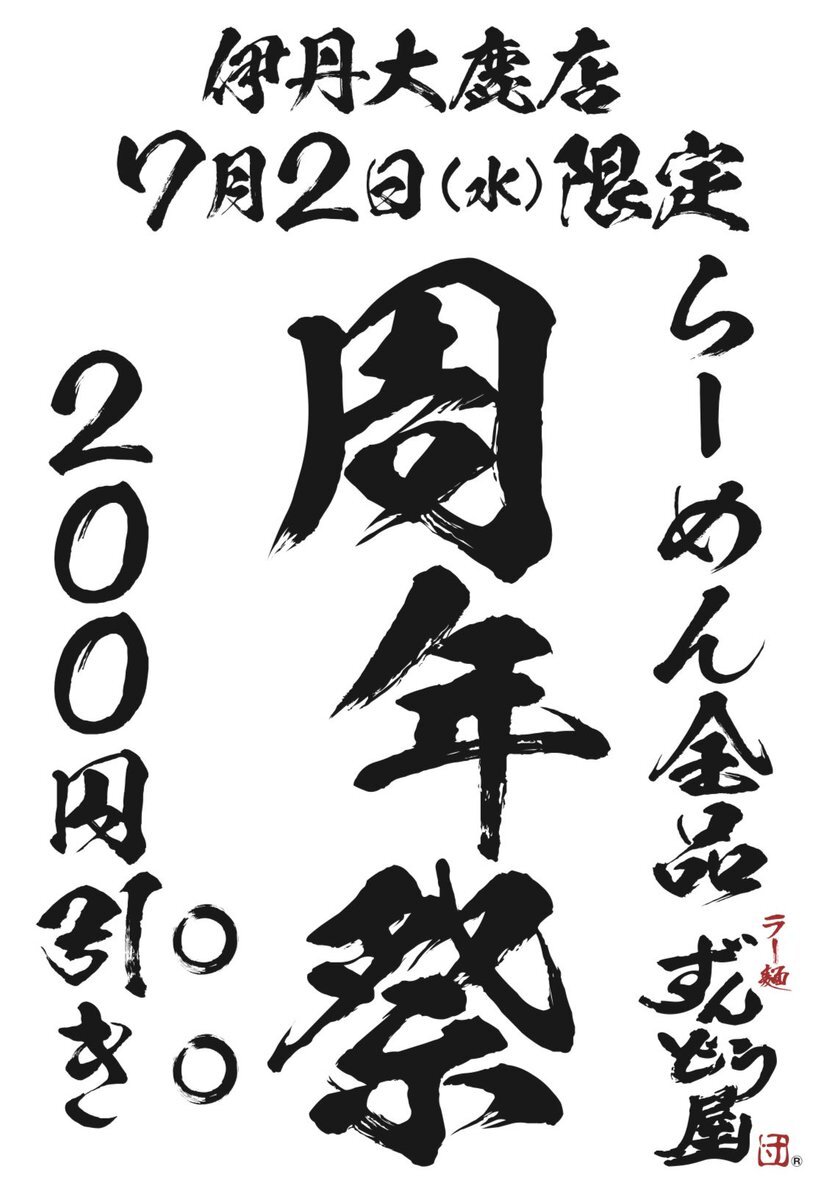 伊丹大鹿店
7月2日(水)限定
らーめん全品
周年祭
200円引き
○○
ラー麺
ずんどう屋
団®